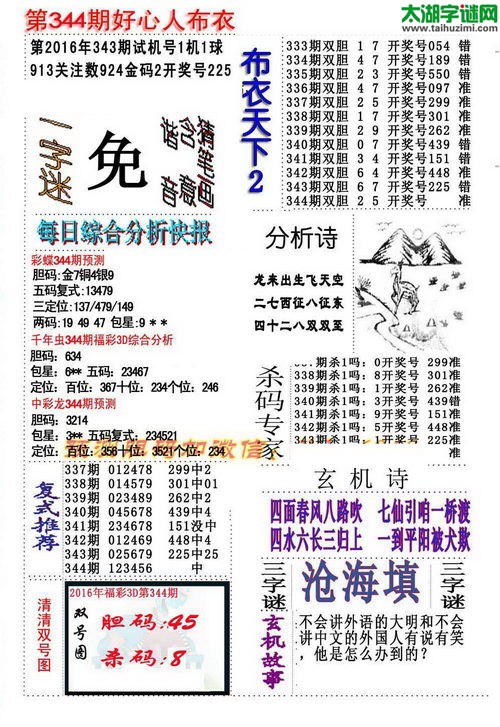 第344期好心人布衣
太湖字谜网
www.taihuzimi.com
第2016年343期试机号1机1球
913关注数924金码2开奖号225
一字迷
免
猜笔画
含意
谐音
布衣天下2
333期双胆 1 7 开奖号054 错
334期双胆 4 7 开奖号189 错
335期双胆 2 4 开奖号550 错
336期双胆 4 7 开奖号097 准
337期双胆 2 5 开奖号299 准
338期双胆 0 1 开奖号301 准
339期双胆 2 9 开奖号262 准
340期双胆 0 7 开奖号439 错
341期双胆 3 4 开奖号151 错
342期双胆 6 4 开奖号448 准
343期双胆 6 7 开奖号225 错
344期双胆 2 5 开奖号 准
每日综合分析快报
彩蝶344期预测
胆码:金7铜4银9
五码复式:13479
三定位:137/479/149
两码:19 49 47 包星:9 * *
千年虫344期福彩3D综合分析
胆码: 634
包星: 6** 五码: 23467
定位: 百位: 367十位: 234个位: 246
中彩龙344期预测
胆码: 3214
包星: 3** 五码复式: 234521
定位: 百位: 356十位: 3521个位: 234
分析诗
龙来出生飞天空
二七西征八征东
四十二八双双至
杀码专家
337期杀1吗: 0开奖号 299准
338期杀1吗: 8开奖号 301准
339期杀1吗: 1开奖号 262准
340期杀1吗: 6开奖号 439准
341期杀1吗: 9开奖号 151准
342期杀1吗: 5开奖号 448准
343期杀1吗: 0开奖号 225准
复式推荐
337期 012478 299中2
338期 014579 301中01
339期 023489 262中2
340期 015678 439没中
341期 234678 151没中
342期 012479 448中4
343期 025679 225中25
344期 123456 中
玄机诗
四面春风八路吹 七仙引咱一桥渡
四水六长三归上 一到平阳被犬欺
清清双号图
2016年福彩3D第344期
双号图
胆码:45
杀码:8
三字谜
沧海填
三字谜
玄机故事
不会讲外语的大明和不会
讲中文的外国人有说有笑
,他是怎么办到的?